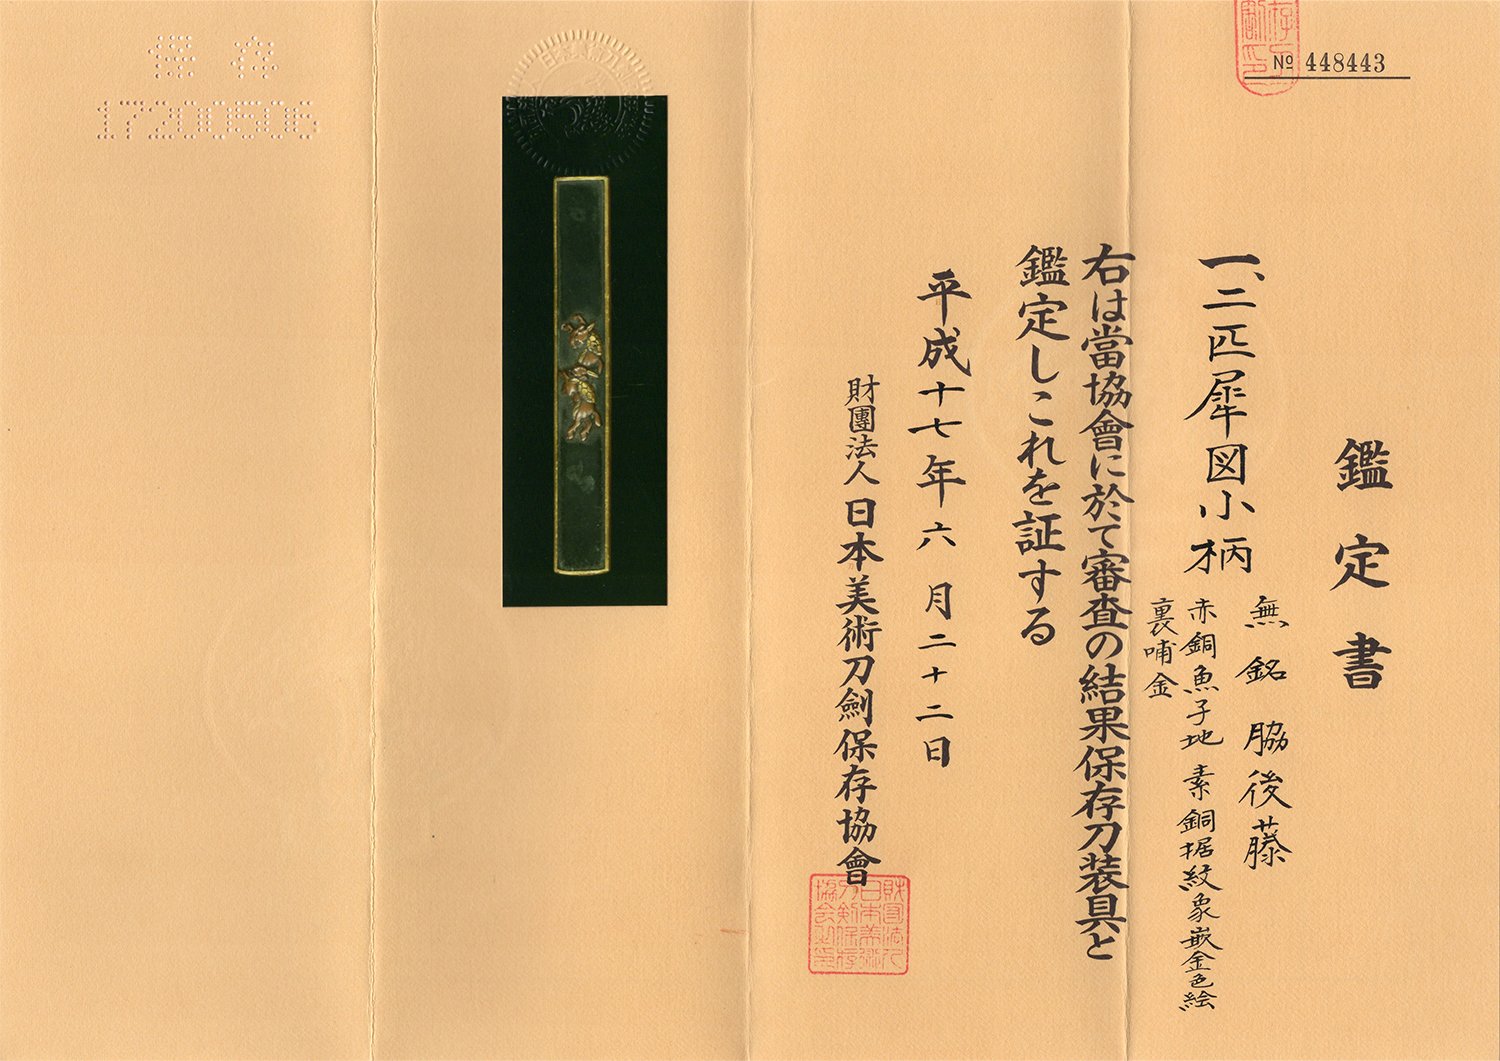 鑑定書
№ 448443
一、二匹犀図小柄
無銘 脇後藤
赤銅魚子地 素銅据紋象嵌金色絵
裏哺金
右は當協會に於て審査の結果保存刀装具と
鑑定しこれを証する
平成十七年六月二十二日
財團法人日本美術刀劍保存協會
保存
17200506